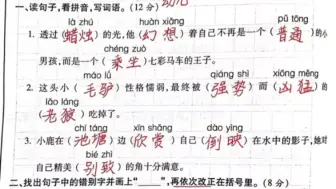 一、读句子,看拼音,写词语。(12分)
là zhú huàn xiǎng pǔ tōng
1. 透过(蜡烛)的光,他(幻想)着自己不再是一个(普通)的小
chéng zuò
男孩,而是一个(乘坐)七彩马车的王子。
máo lǘ qiáng shì xiōng měng
2. 这头小(毛驴)性格懦弱,最终被(强势)而(凶猛)的
lǎo láng
(老狼)吃掉了。
chí táng xīn shǎng dào yìng
3. 小鹿在(池塘)边(欣赏)自己(倒映)在水中的影子,她
bié zhì
自己精美(别致)的角十分满意。
二、找出句子中的错别字并画上“___”,再依次改正在括号里。(8分)